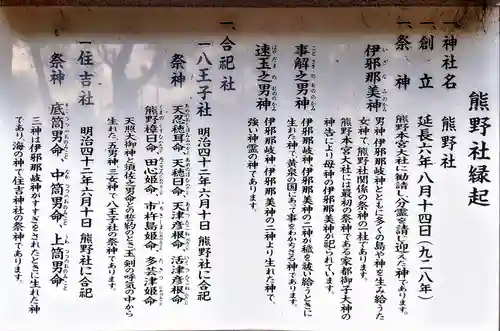 熊野社縁起
一、神社名　熊野社
一、創立　延長六年八月十四日（九二八年）
熊野本宮大社に勧請し、分霊を請じ迎えた神であります。
一、祭神
伊邪那美神
男神 伊邪那岐神とともに多くの島や神を生み給うた
女神で、熊野社関係の祭神の一社であります。
熊野本宮大社には最初の祭神である家都御子大神の
神告により母神の伊邪那美神が祀られています。
事解之男神
伊邪那岐神、伊邪那美神の二神が穢を祓い給うときに
生れた神で、黄泉の国にあって事をわかさる神であります。
速玉之男神
伊邪那岐神、伊邪那美神の二神より生れた神で、
強い神霊の神であります。
一、合祀社
一、八王子社　明治四十二年六月十日　熊野社に合祀
祭神　天忍穂耳命　天穂日命　天津彦根命　活津彦根命
熊野樟日命　田心姫命　市杵島姫命　多芸津姫命
天照大御神と須佐之男命との誓約のとき玉剣の呼気の中から
生れた、五男神、三女神で、八王子の神であります。
一、住吉社　明治四十二年六月十日　熊野社に合祀
祭神　底筒男命　中筒男命　上筒男命
三神は伊邪那岐神がみすすぎをされたときに生れた神
であり、海の神で住吉神社の祭神であります。